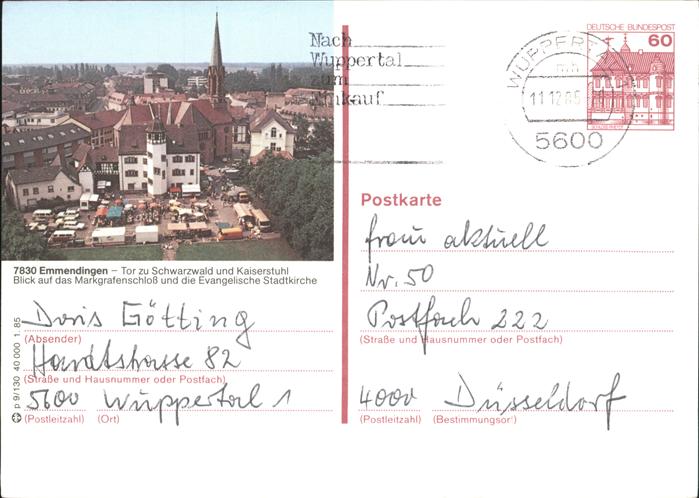 Nach
Wuppertal
zum
Einkauf
WUPPERTAL
mh
11.12.85
5600
DEUTSCHE BUNDESPOST
60
7830 Emmendingen – Tor zu Schwarzwald und Kaiserstuhl
Blick auf das Markgrafenschloß und die Evangelische Stadtkirche
Doris Götting
(Absender)
Hardtstrasse 82
(Straße und Hausnummer oder Postfach)
5600 Wuppertal 1
(Postleitzahl) (Ort)
p 9/130 40 000 1. 85
Postkarte
frau aktuell
Nr. 50
Postfach 222
(Straße und Hausnummer oder Postfach)
4000 Düsseldorf
(Postleitzahl) (Bestimmungsort)